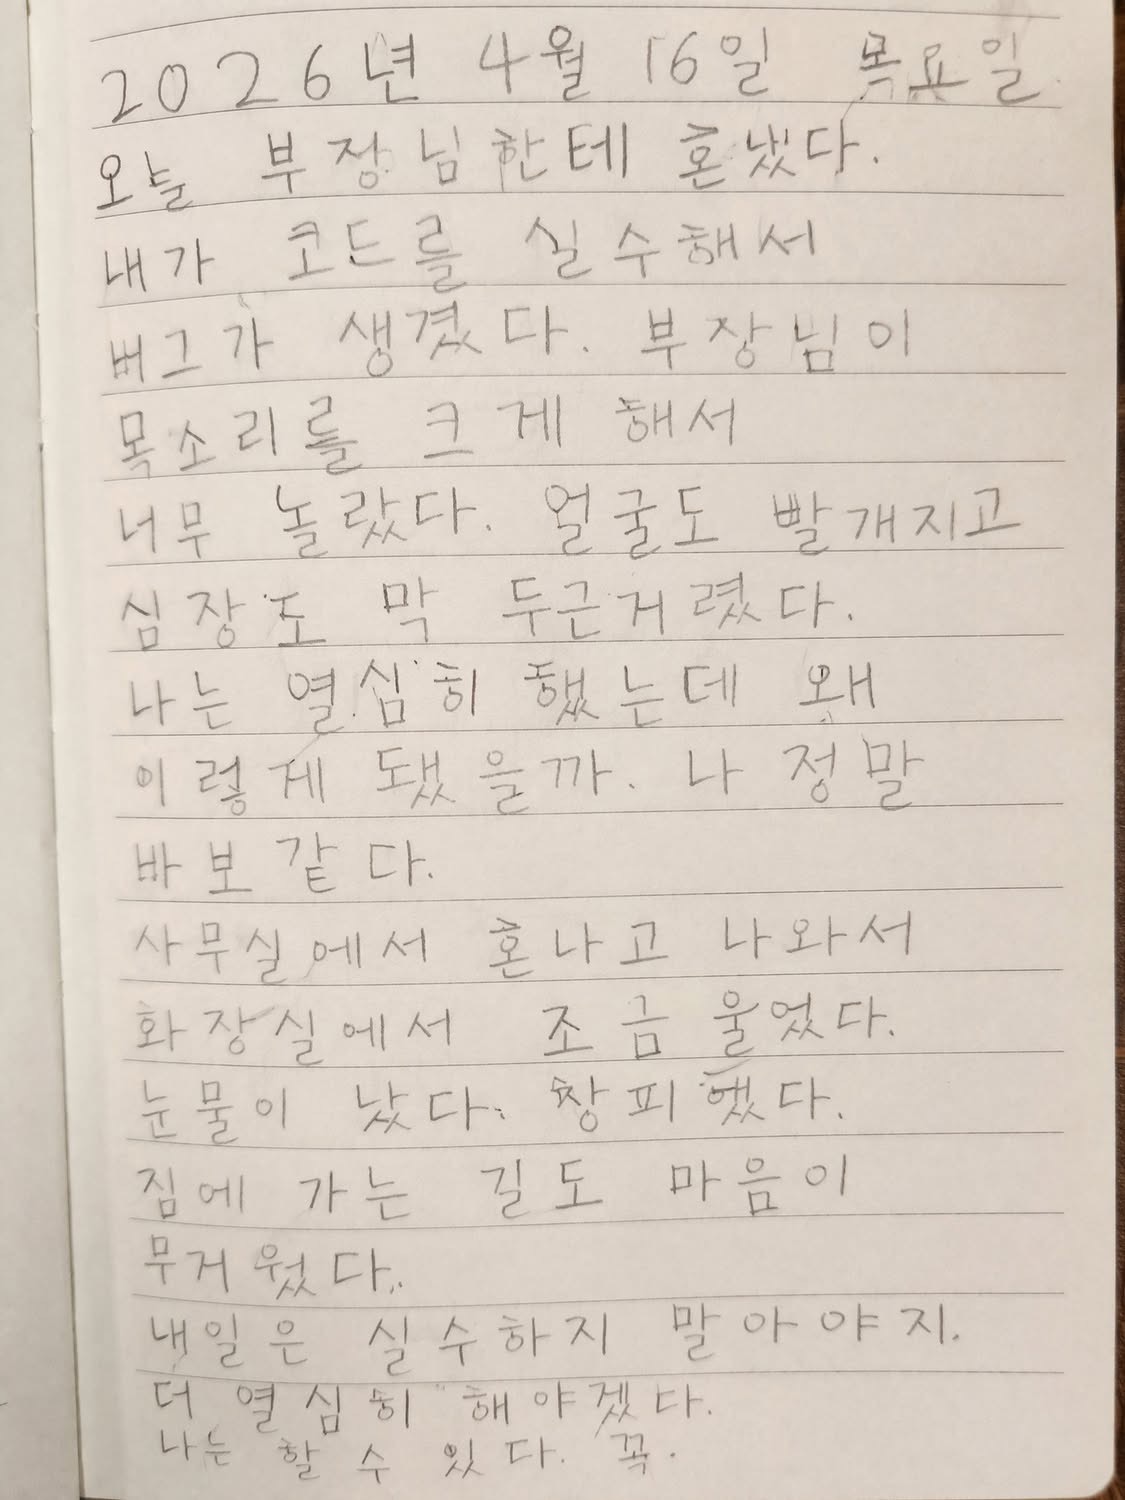 2026년 4월 16일 목요일
오늘 부장님한테 혼냈다.
내가 코드를 실수해서
버그가 생겼다. 부장님이
목소리를 크게 해서
너무 놀랐다. 얼굴도 빨개지고
심장도 막 두근거렸다.
나는 열심히 했는데 왜
이렇게 됐을까. 나 정말
바보 같다.
사무실에서 혼나고 나와서
화장실에서 조금 울었다.
눈물이 났다. 창피했다.
집에 가는 길도 마음이
무거웠다.
내일은 실수하지 말아야지.
더 열심히 해야겠다.
나는 할 수 있다. 꼭.